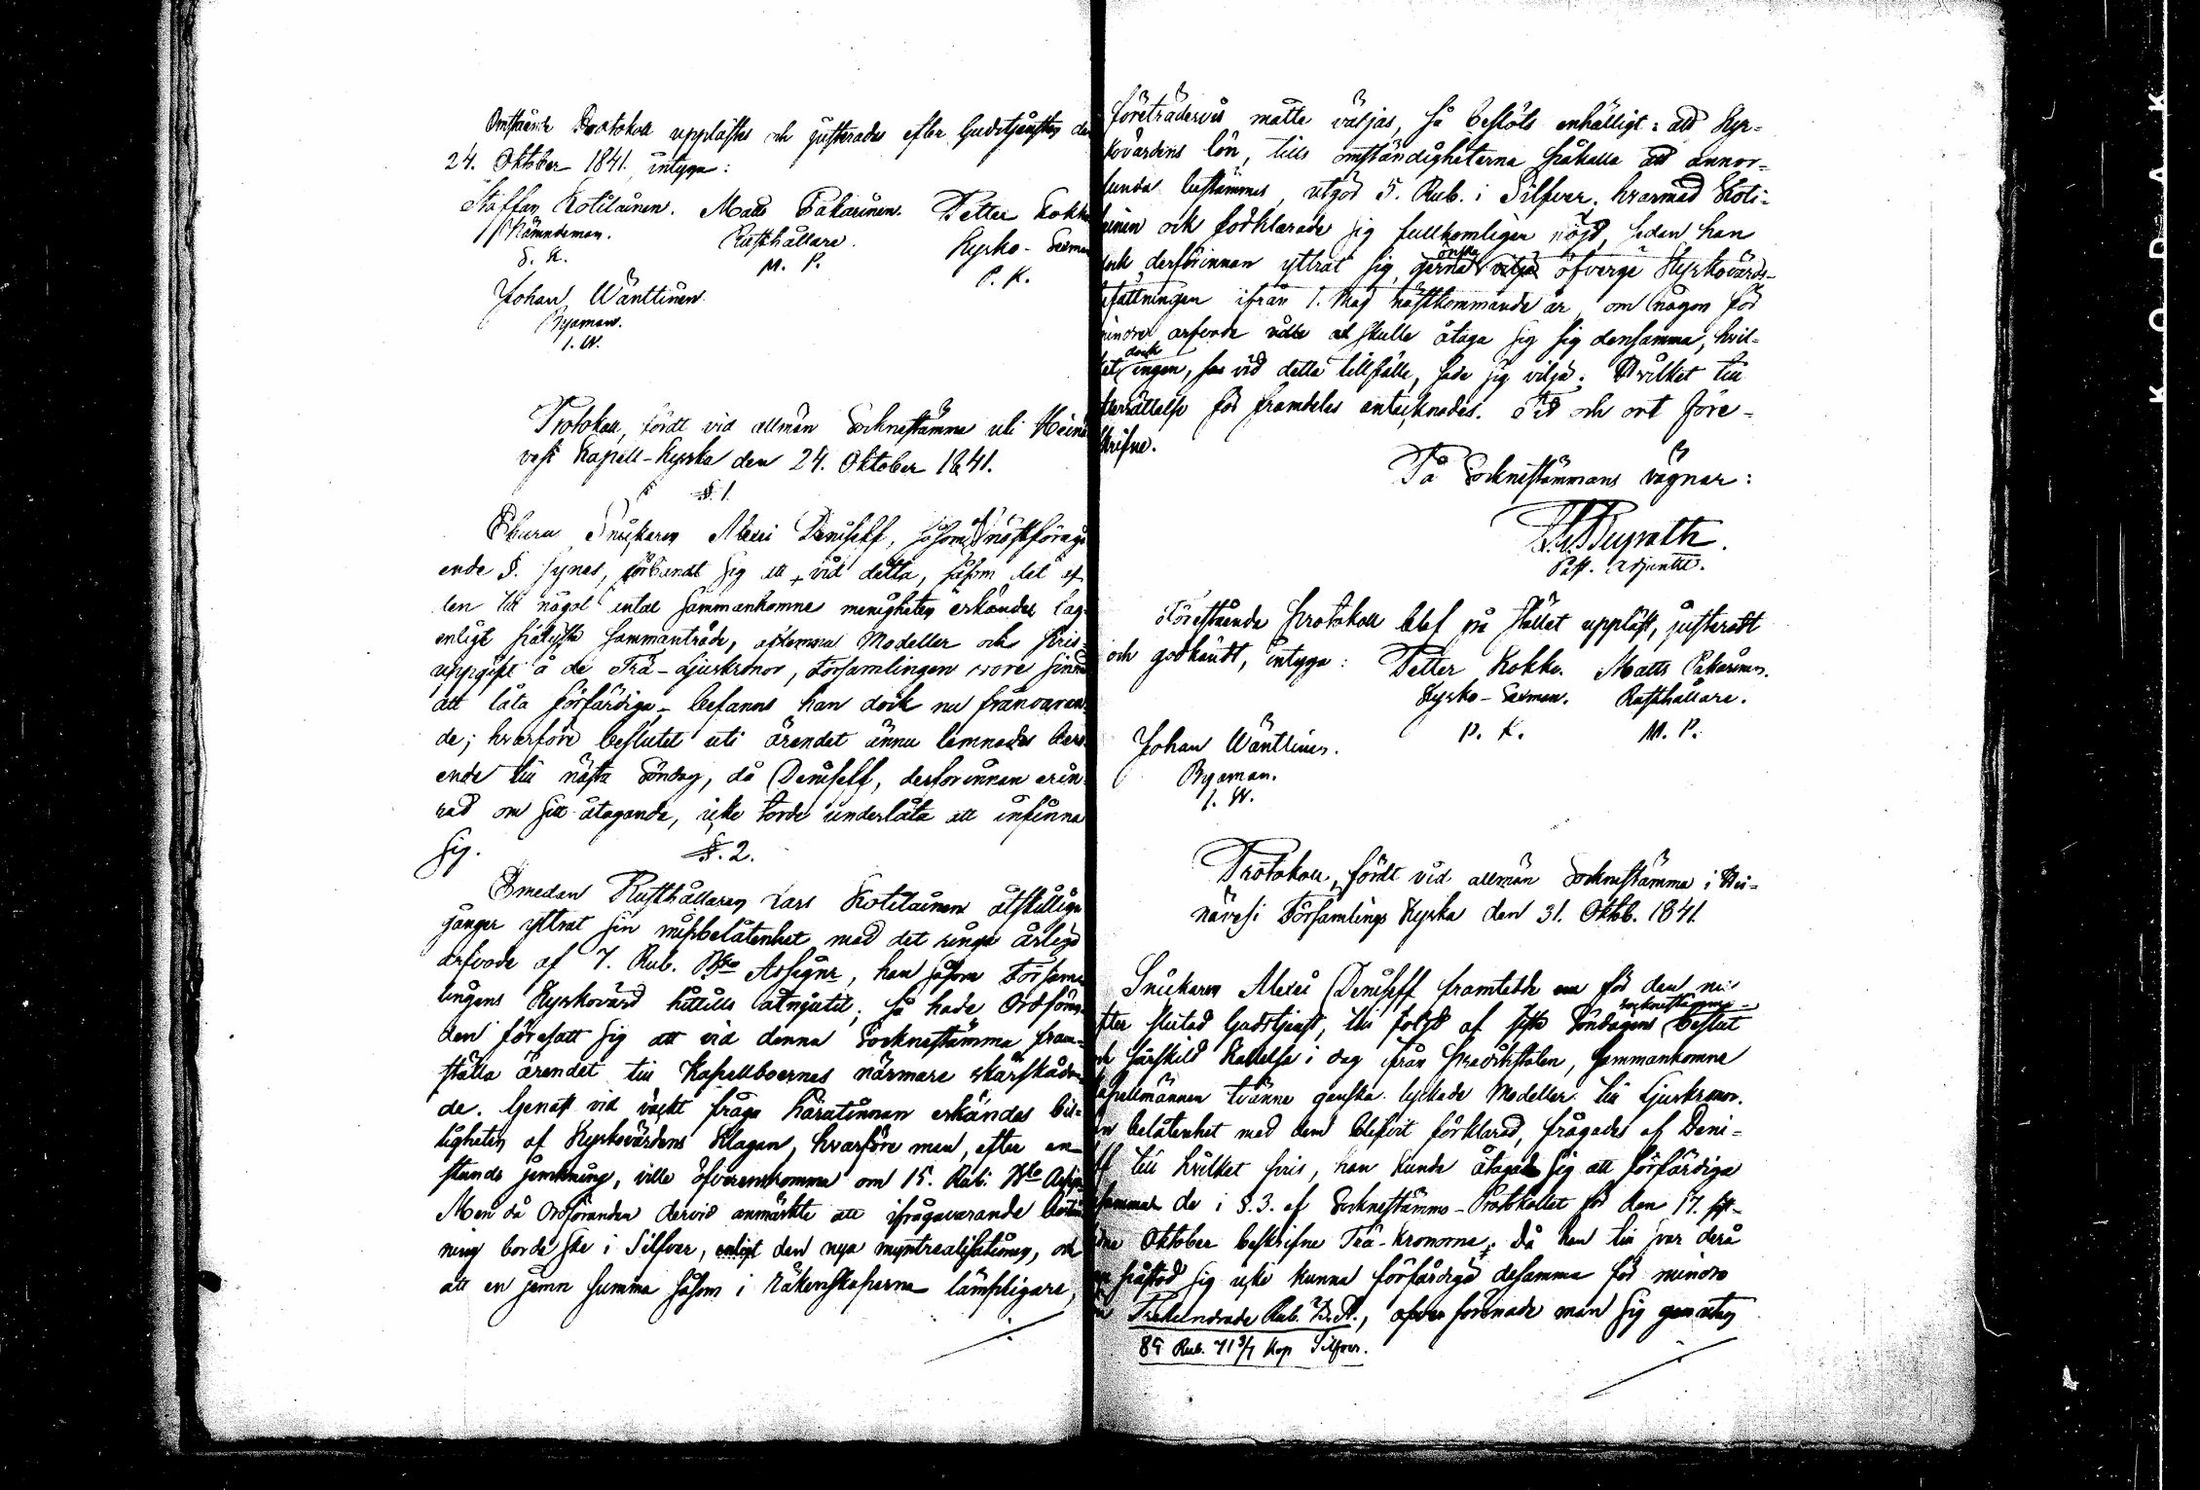 Omstående Protokoll upplästes och justerades efter Gudstjensten den
24. Oktober 1841. intyga:
Staffan Kotilainen. Matts Pakarinen. Petter Kokko
Nämndeman. Rusthållare. Kyrko-Sexman
S. K. M. P. P. K.
Johan Wänttinen.
Byaman.
I. W.
Protokoll, fördt vid allmän Socknestämma uti Heinä
vesi Kapell-Kyrka den 24. Oktober 1841.
§. 1.
Ehuru Snickaren Alexei Deniseff, såsom af nästföregå
ende §. synes, förbundit sig att vid detta, såsom det af
den till något antal sammankomne menigheten erkändes lag-
enligt pålyste sammanträde, aflemna Modeller och pris-
uppgift å de Trä-Ljuskronor, Församlingen vore sinnad
att låta förfärdiga, befanns han dock nu frånvaran-
de; hvarföre beslutet uti ärendet ännu lemnades bero-
ende till nästa Söndag, då Deniseff, derförinnan erin-
rad om sitt åtagande, icke torde underlåta att infinna
sig.
§. 2.
Emedan Rusthållaren Lars Kotilainen åtskillige
gånger yttrat sin missbelåtenhet med det ringa årliga
arfvode af 7. Rub. Bko Assignr, han såsom Försam-
lingens Kyrkovärd hittills åtnjutit; så hade Ordföran-
den föresatt sig att vid denna Socknestämma fram-
ställa ärendet till Kapellboernes närmare skärskådan-
de. Genast vid väckt fråga härutinnan erkändes bil-
ligheten af Kyrkovärdens klagan, hvarföre man, efter en
stunds jemkning, ville öfverenskomma om 15. Rub. Bko Assign.
Men då Ordföranden dervid anmärkte att ifrågavarande
ning borde ske i Silfver, enligt den nya myntrealisationen, och
att en jemn summa såsom i räkenskaperna lämpligare,
företrädesvis måtte väljas, så beslöts enhälligt: att Kyr-
kovärdens lön, tills omständigheterna påkalla att annor-
lunda bestämmes, utgör 5. Rub. i Silfver, hvarmed Koti-
lainen ock förklarade sig fullkomligen nöjd, sedan han
ock derförinnan yttrat sig önska öfverge Kyrkovärds-
befattningen ifrån 1. Maj nästkommande år, om någon för
mindre arfvode skulle åtaga sig densamma, hvil-
ket dock ingen, vid detta tillfälle, sade sig vilja. Hvilket till
efterrättelse för framdeles antecknades. Tid och ort före-
skrifne.
På Socknestämmans vägnar:
Past. Adjunctus.
Förestående Protokoll blef på stället uppläst, justeradt
och godkändt, intyga: Petter Kokko. Matts Pakarinen.
Kyrko-Sexman. Rusthållare.
P. K. M. P.
Johan Wänttinen.
Byaman.
I. W.
Protokoll, fördt vid allmän Socknestämma i Hei-
nävesi Församlings Kyrka den 31. Oktob. 1841.
Snickaren Alexei Deniseff framtedde för den nu
efter slutad Gudstjenst, till följd af sista Söndagens socknestämmo-beslut
och särskild kallelse i dag ifrån predikstolen, sammankomne
Kapellmännen tvänne ganska lyckade Modeller till Ljuskronor.
belåtenhet med dem blifvit förklarad, frågades af Deni-
seff till hvilket pris, han kunde åtaga sig att förfärdiga
de i §. 3. af Socknestämmo-Protokollet för den 17. sist-
ledne Oktober beskrifne Trä-kronorne; då han till svar derå
påstod sig icke kunna förfärdiga desamma för mindre
än Trehundrade Rub. B. A., förenade man sig
85 Rub. 71 3/7 Kop Silfver.
KODAK